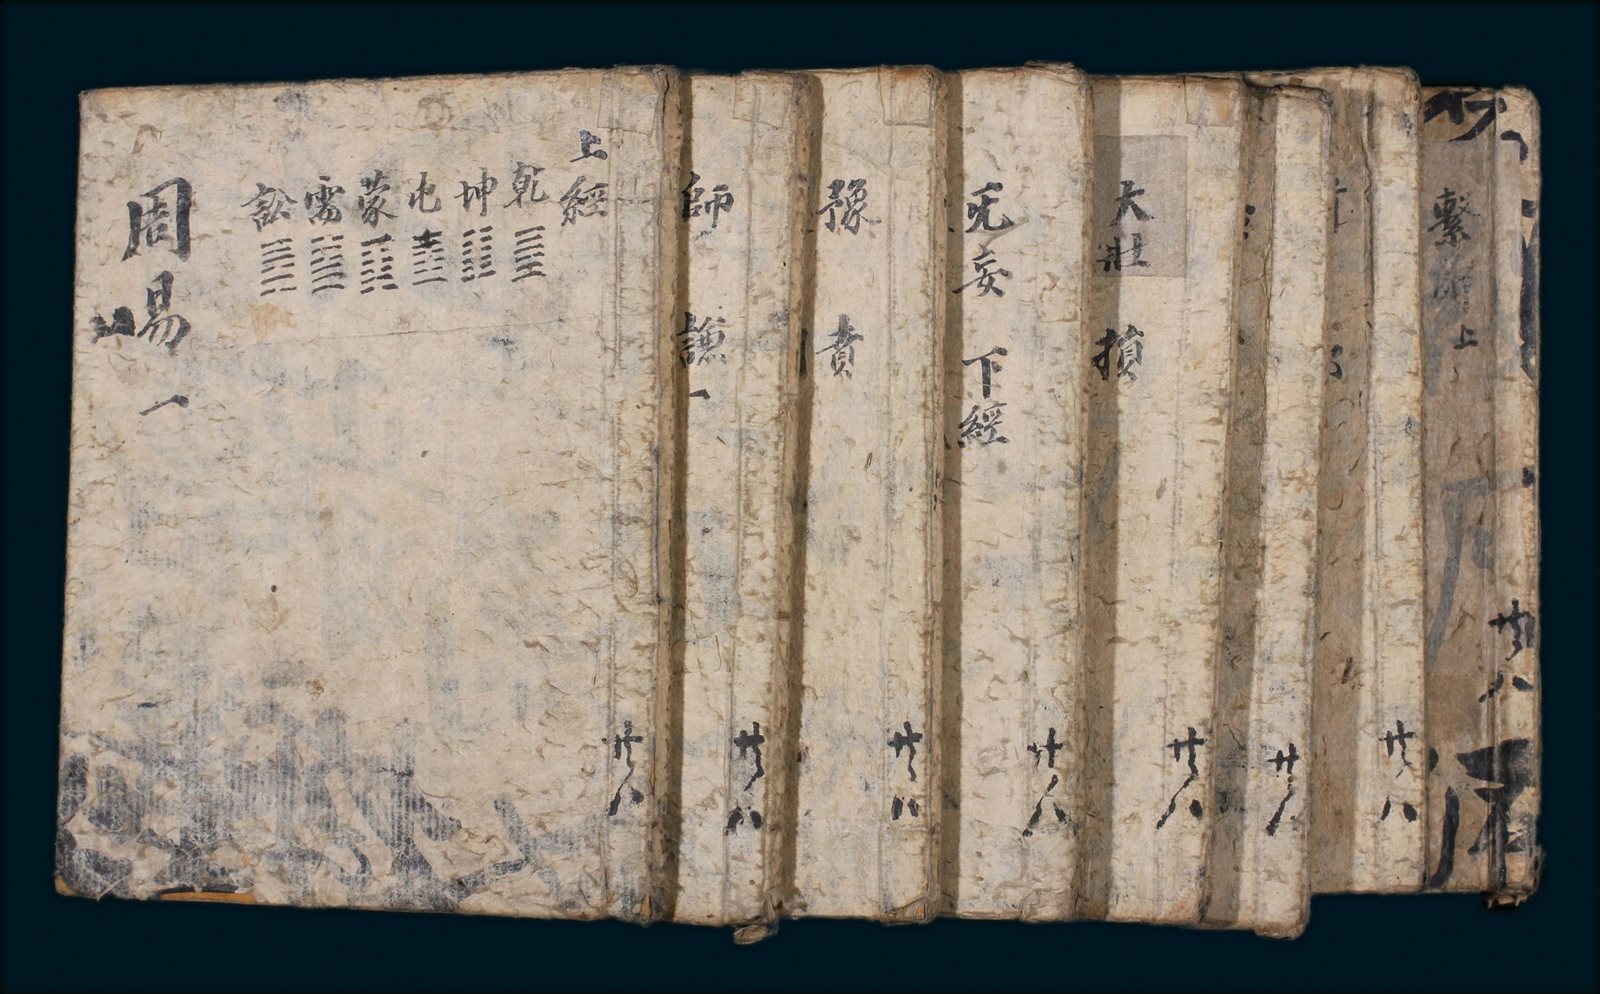 上經
乾
坤
屯
蒙
需
訟
周易一
師 謙一
豫 賁
无妄 下經
大壯 損
繫辭上
廿八
廿八
廿八
廿八
廿八
廿八
廿八
廿八